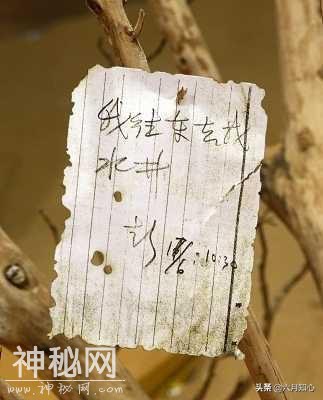 我往东去找
水井
彭
17/6: 10:30
神秘网
www.神秘网.com
头条@六月知心